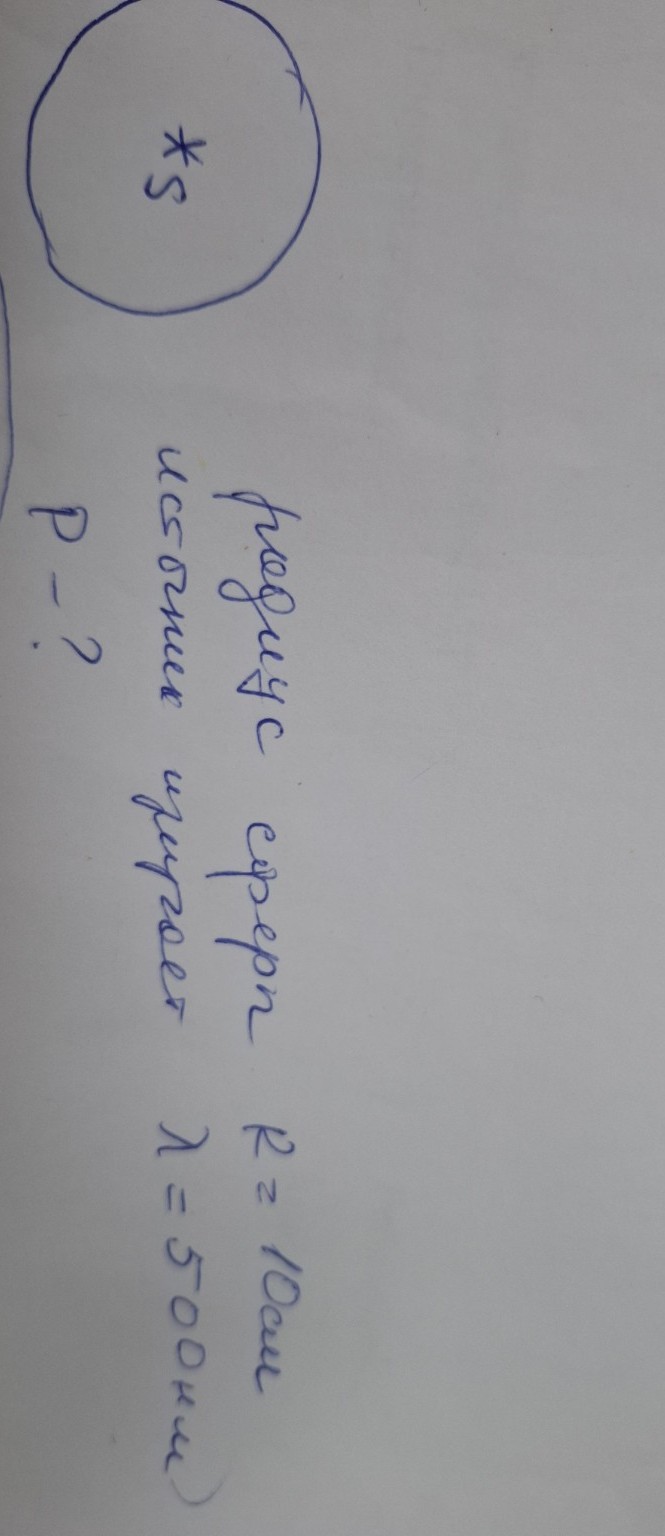 * S
радиус сферы R = 10 см
источник излучает λ = 500 нм)
P - ?